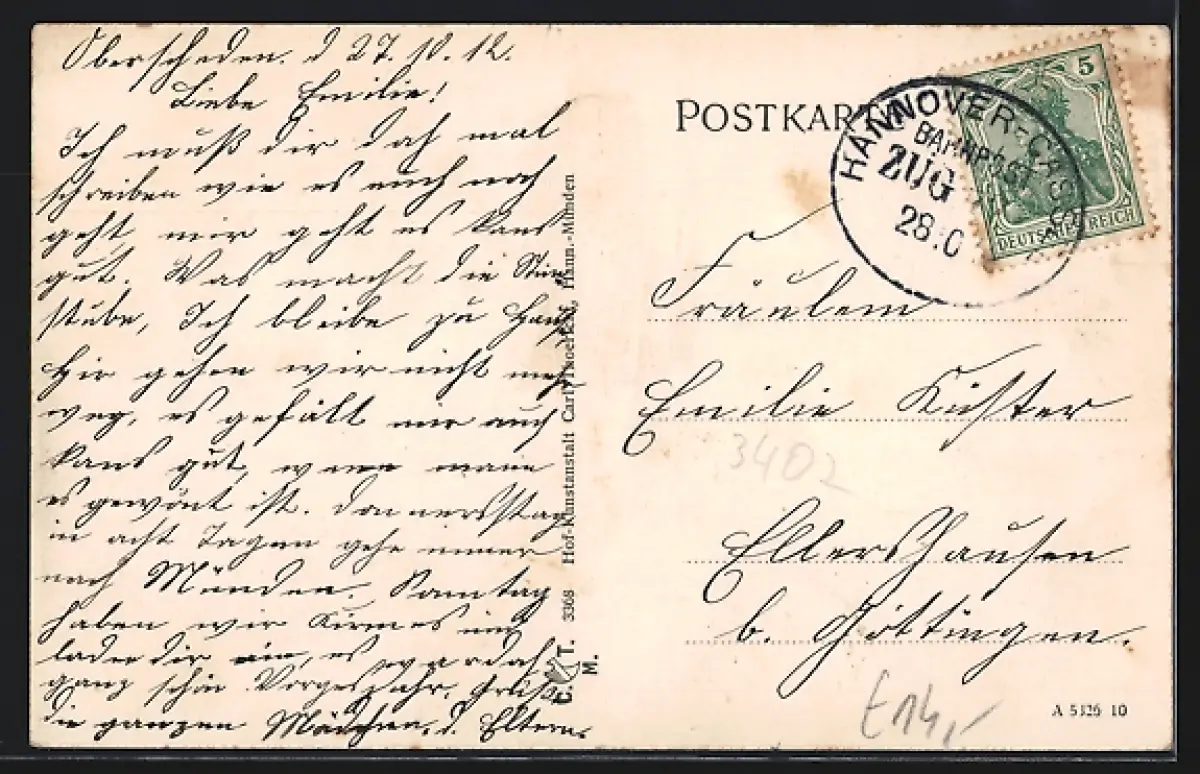 Oberscheden. d 27. 10. 12.
Liebe Emilie!
Ich muß dir doch mal
schreiben wie es euch noch
geht, mir geht es kans
gut. Was macht die
stube, Ich bleibe zu Haus
Hir gehen wir nicht mehr
weg, es gefält mir auch
kans gut, wenn mann
es gewönt ist. Donnersstag
in acht Tagen gehe immer
nach Münden. Sonntag
haben wir Kirmes und
lade dir ein, es war doch
ganz schön Vorges Jahr. Grüße
die ganzen Mädchen. d. Eltern.
C. T. M. 3368 Hof-Kunstanstalt Carl Thoericht, Hann.-Münden
POSTKARTE
HANNOVER-CASSEL
BAHNPOST
ZUG
28.10
5
DEUTSCHES REICH
Fräulein
Emilie Küster
3402
Ellershausen
b. Göttingen.
E14,-
A 5326 10